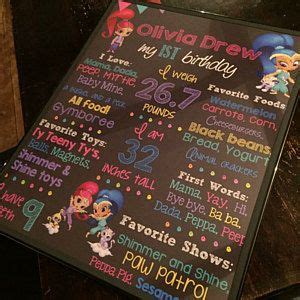 Olivia Drew
my 1ST birthday
I Love:
Mama, Dada,
Peep, MYTHE,
Baby Mine,
All food!
Gymboree
Favorite Toys:
Ty Teeny Ty's,
Balls, Magnets,
Shimmer &
Shine toys
I have
9
teeth
I weigh
26.7
POUNDS
I am
32
INCHES TALL
Favorite Foods:
Watermelon,
Carrots, Corn,
Cheeseburgers,
Black beans,
Bread, Yogurt
Animal crackers
First Words:
Mama, Yay, Hi,
Bye bye, Ba ba,
Dada, Peppa, Peep
Favorite Shows:
Shimmer and Shine
Paw Patrol
Peppa Pig, Sesame